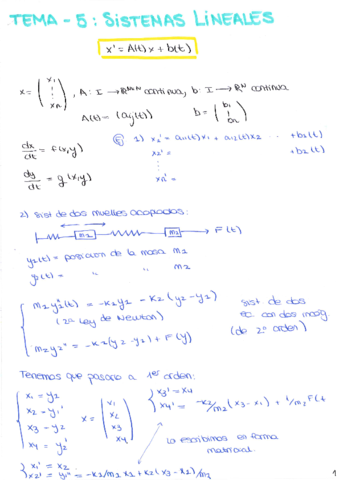 TEMA - 5 : SISTEMAS LINEALES
x' = A(t)x + b(t)
x = (x1 ⋮ xN), A: I → R^{N×N} continua, b: I → R^N continua
A(t) = (aij(t)) b = (b1 ⋮ bN)
dx/dt = f(x,y)
dy/dt = g(x,y)
1) x1' = a11(t)x1 + a12(t)x2 ... + b1(t)
x2' = + b2(t)
⋮
xN' =
2) Sist de dos muelles acoplados:
m1 m2 → F(t)
y1(t) = posicion de la masa m1
y2(t) = " " m2
m1 y1''(t) = -k1y1 - k2(y2-y1)
(2ª Ley de Newton)
m2 y2'' = -k2(y2-y1) + F(y)
sist de dos
ec con dos incog
(de 2º orden)
Tenemos que pasarlo a 1er orden:
x1 = y1
x2 = y1'
x3 = y2
x4 = y2'
x = (x1 x2 x3 x4)
x3' = x4
x4' = -k2/m2 (x3-x1) + 1/m2 F(t
Lo escribimos en forma
matricial.
x1' = x2
x2' = y1'' = -k1/m1 x1 + k2(x3-x2)/m2
1